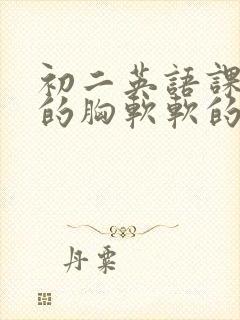 初二英語課
的胸軟軟的
丹粟